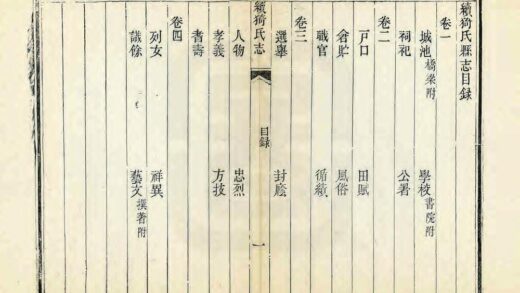 續猗氏縣志目錄
卷一
城池橋梁附　學校書院附
祠祀　公署
卷二
戶口　田賦
倉貯　風俗
職官　循績
卷三
選舉　封廕
續猗氏志　目錄　一
人物　忠烈
孝義　方技
耆壽
卷四
列女　祥異
識餘　藝文撰著附